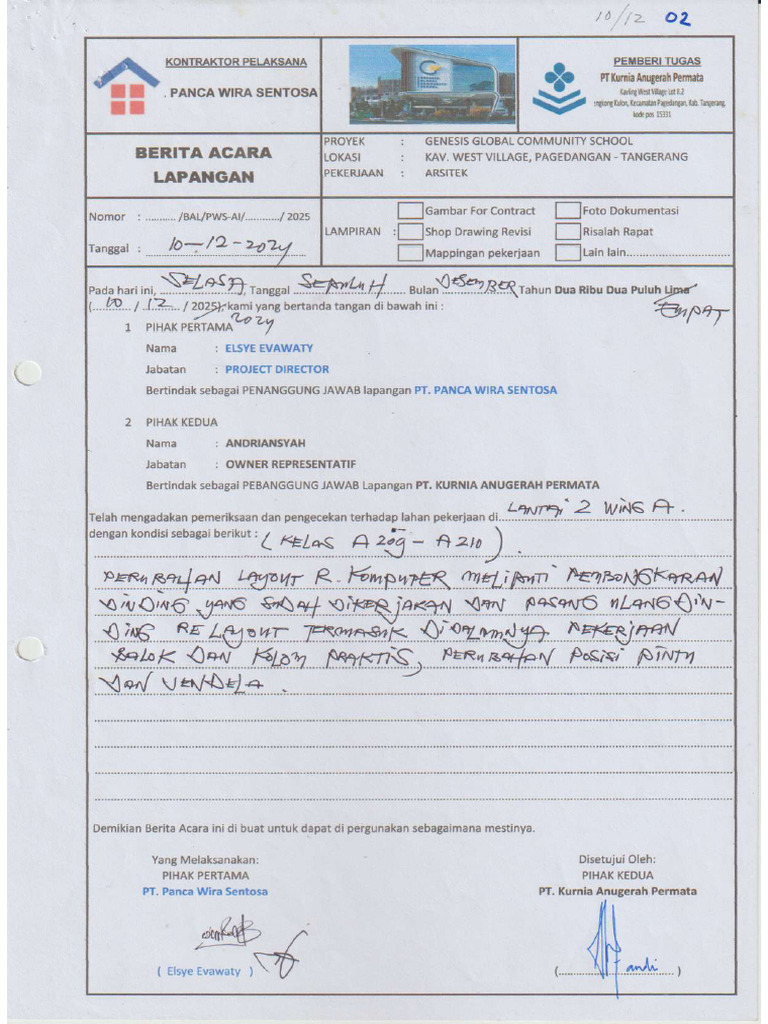 10/12 02
KONTRAKTOR PELAKSANA
PANCA WIRA SENTOSA
PEMBERI TUGAS
PT Kurnia Anugerah Permata
Kavling West Village Lot II.2
engkong Kulon, Kecamatan Pagedangan, Kab. Tangerang,
kode pos 15331
BERITA ACARA
LAPANGAN
PROYEK : GENESIS GLOBAL COMMUNITY SCHOOL
LOKASI : KAV. WEST VILLAGE, PAGEDANGAN - TANGERANG
PEKERJAAN : ARSITEK
Nomor : .......... /BAL/PWS-AI/.........../ 2025
Tanggal : 10-12-2024
LAMPIRAN :
Gambar For Contract
Foto Dokumentasi
Shop Drawing Revisi
Risalah Rapat
Mappingan pekerjaan
Lain lain
Pada hari ini, SELASA Tanggal SEPULUH Bulan DESEMBER Tahun Dua Ribu Dua Puluh Lima
EMPAT
( 10 / 12 / 2025), kami yang bertanda tangan di bawah ini :
2024
1 PIHAK PERTAMA
Nama : ELSYE EVAWATY
Jabatan : PROJECT DIRECTOR
Bertindak sebagai PENANGGUNG JAWAB lapangan PT. PANCA WIRA SENTOSA
2 PIHAK KEDUA
Nama : ANDRIANSYAH
Jabatan : OWNER REPRESENTATIF
Bertindak sebagai PEBANGGUNG JAWAB Lapangan PT. KURNIA ANUGERAH PERMATA
Telah mengadakan pemeriksaan dan pengecekan terhadap lahan pekerjaan di LANTAI 2 WING A.
dengan kondisi sebagai berikut : (KELAS A 209 - A 210)
PERUBAHAN LAYOUT R. KOMPUTER MELIPUTI PEMBONGKARAN
DINDING YANG SUDAH DIKERJAKAN DAN PASANG ULANG DIN-
DING RE LAYOUT TERMASUK DIDALAMNYA PEKERJAAN
BALOK DAN KOLOM PRAKTIS, PERUBAHAN POSISI PINTU
DAN JENDELA.
Demikian Berita Acara ini di buat untuk dapat di pergunakan sebagaimana mestinya.
Yang Melaksanakan:
PIHAK PERTAMA
PT. Panca Wira Sentosa
( Elsye Evawaty )
Disetujui Oleh:
PIHAK KEDUA
PT. Kurnia Anugerah Permata
(andi)